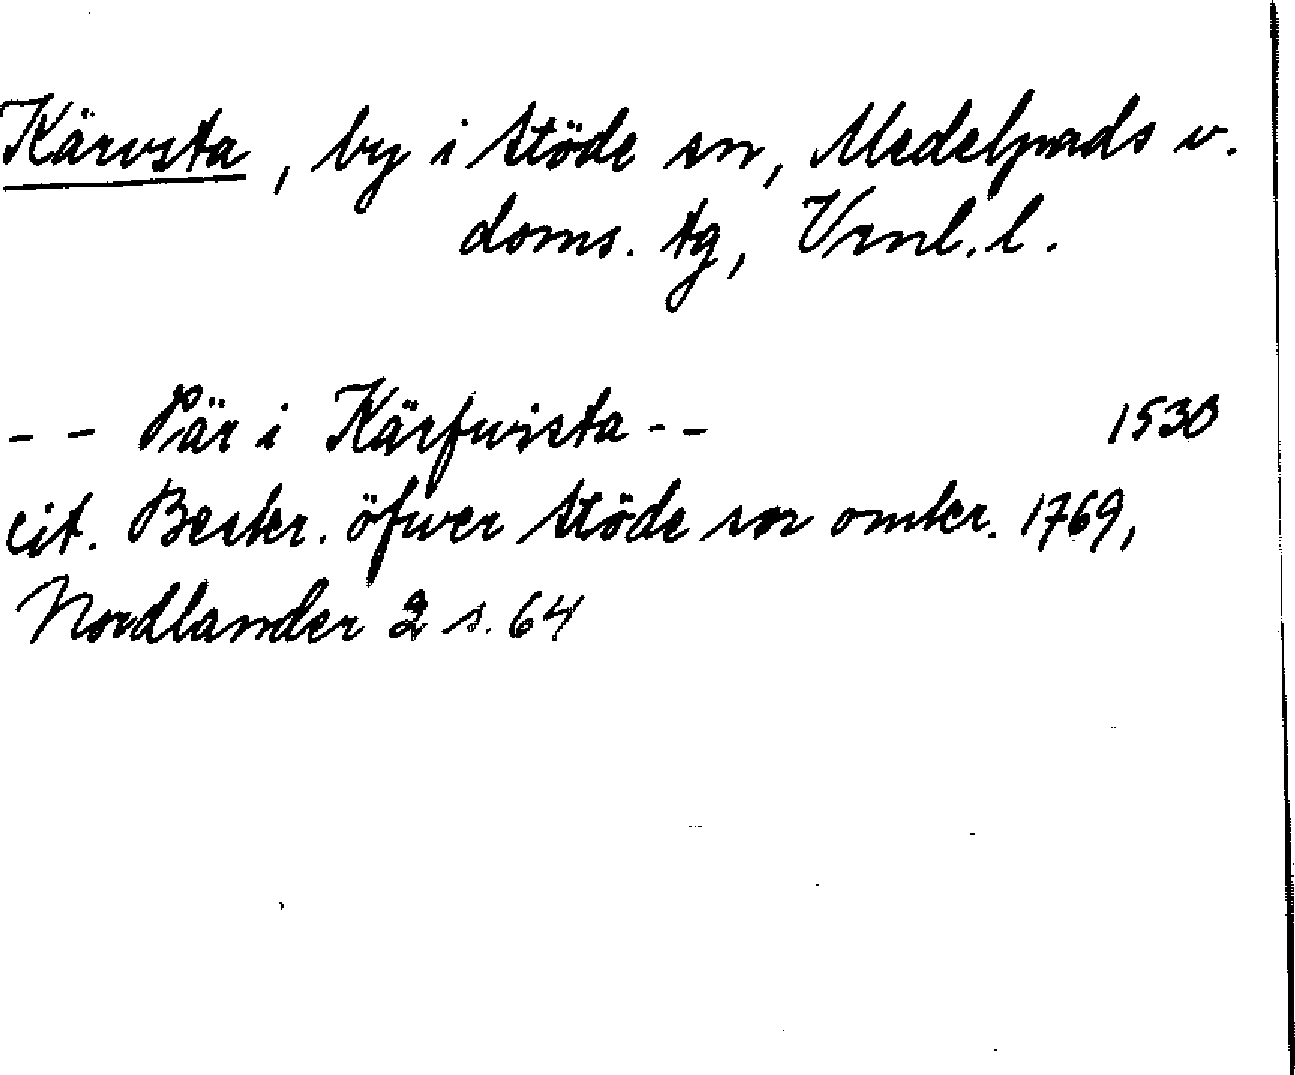 Kärvsta, by i Stöde sn, Medelpads v.
doms. tg, Vrnl. l.
- - Pär i Kärfwista - - 1530
cit. Beskr. öfwer Stöde sn omkr. 1769,
Nordlander 2 s. 64